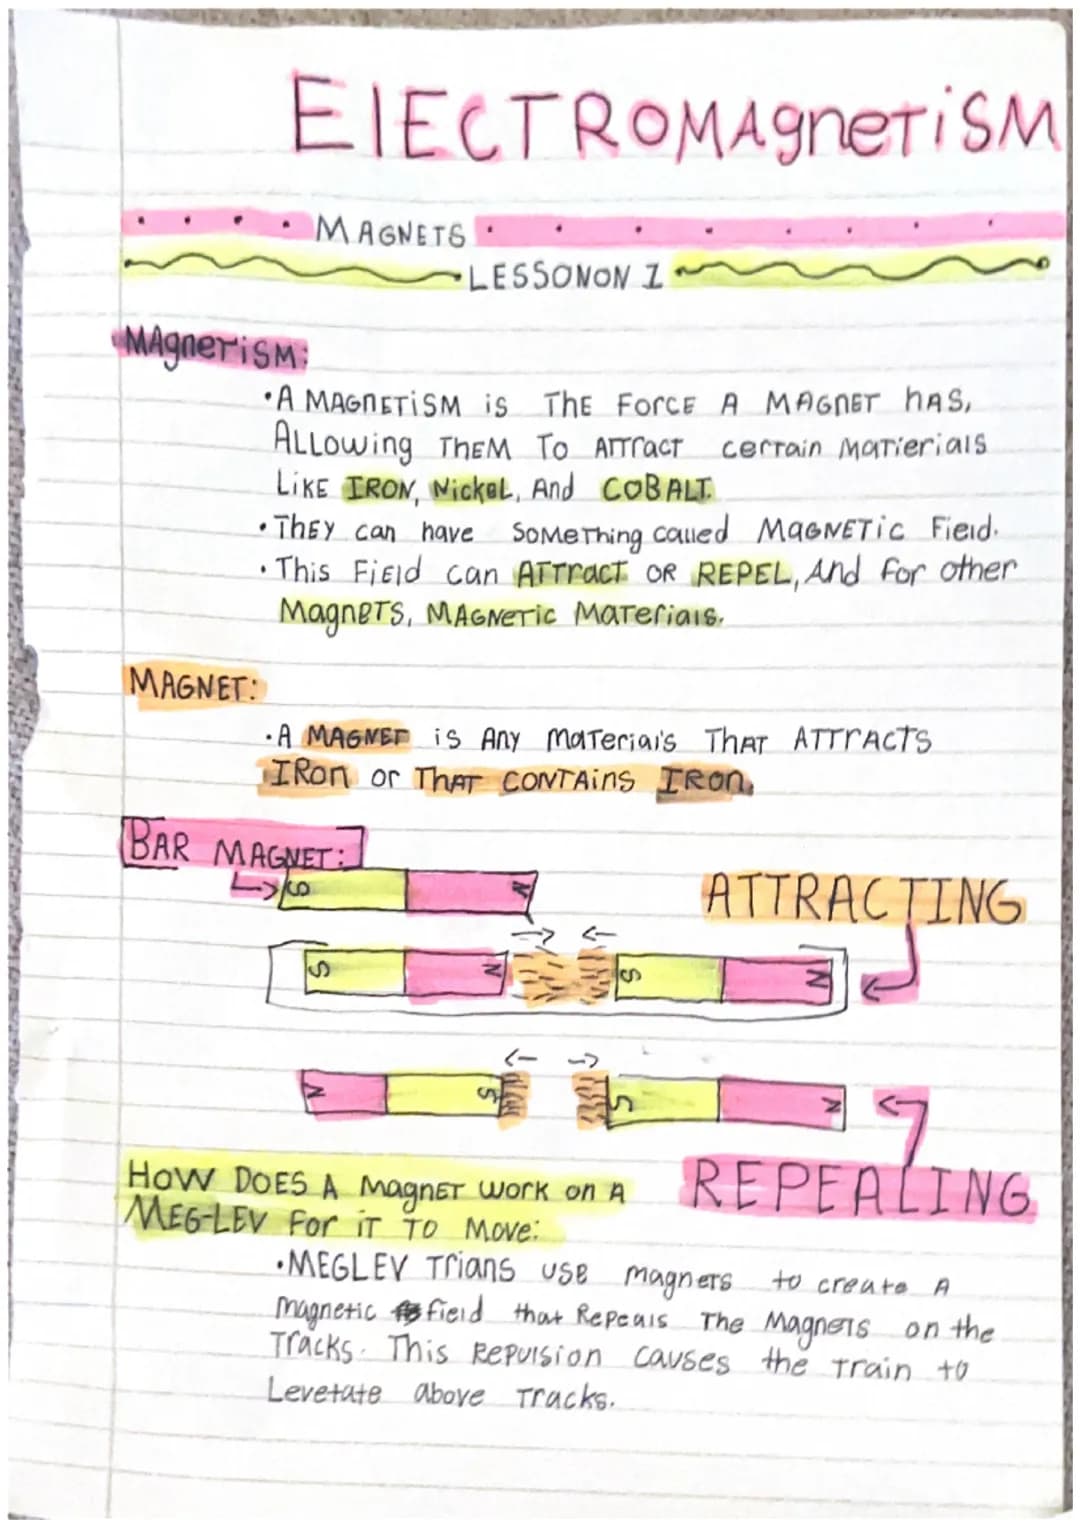 ElECTROMAgneTiSM
MAGNETS
LESSONON 1
MAgneTiSM:
•A MAGnETiSM is THE FORCE A MAGNET hAS,
ALLOwing THEM To ATTracT certain MaTierials
LiKE IRON, NickeL, And COBALT.
•THEY can have SOMeThing called MaGNETic Field.
•This FiEld can ATTracT OR REPEL, And for other
MagneTS, MAGNeTic MaTerials.
MAGNET:
•A MAGNET is Any MaTerial's THAT ATTrACTS
IRon or THAT CONTAins IRon.
BAR MAGNET:
S N
ATTRACTING
S N S N
N S S N
REPEALING
HOW DOES A MagnET work on A
MEG-LEV For iT TO Move:
•MEGLEV Trians use magnets to create A
magnetic field that Repeals The Magnets on the
Tracks. This Repulsion causes the Train to
Levetate above Tracks.